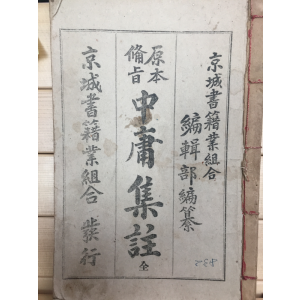 京城書籍業組合
編輯部編纂
原本
備旨
中庸集註
全
京城書籍業組合 發行